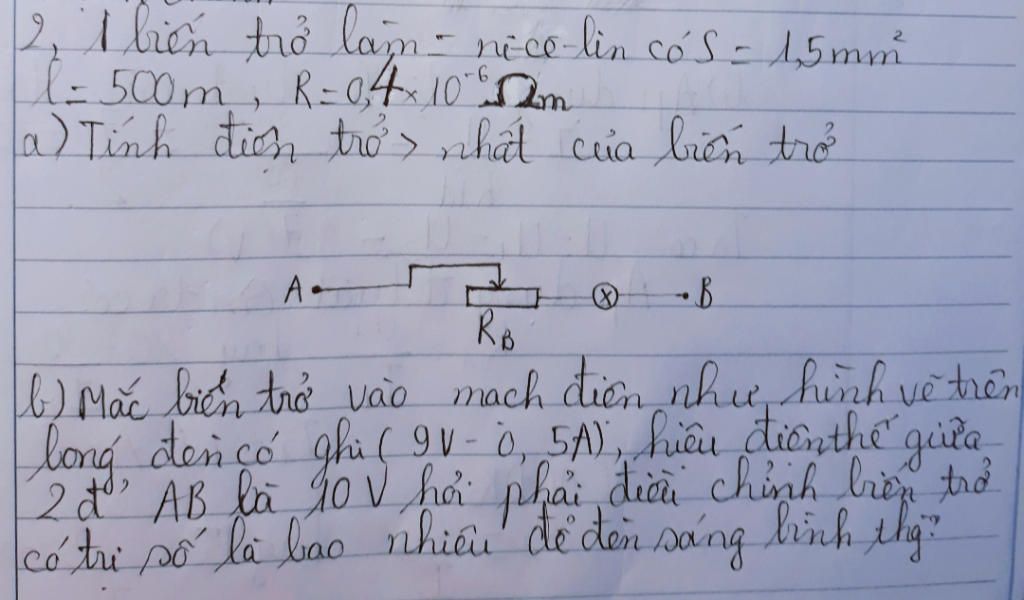 2, 1 biến trở làm = ni-cô-lin có S = 1,5mm²
l = 500m, R = 0,4 × 10⁻⁶ Ωm
a) Tính điện trở > nhất của biến trở
A B
R_B
b) Mắc biến trở vào mạch điện như hình vẽ trên
bóng đèn có ghi ( 9V - 0, 5A), hiệu điện thế giữa
2 đ' AB là 10 V hỏi phải điều chỉnh biến trở
có trị số là bao nhiêu để đèn sáng bình thg?